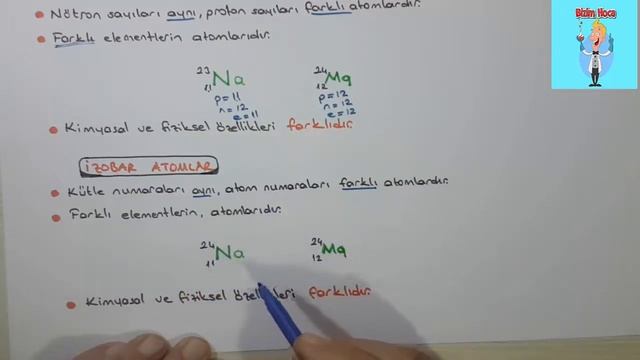 Nötron sayıları aynı, proton sayıları farklı atomlardır.
Farklı elementlerin atomlarıdır.
23 11 Na 24 12 Mg
p=11 p=12
n=12 n=12
e=11 e=12
Kimyasal ve fiziksel özellikleri farklıdır.
İZOBAR ATOMLAR
Kütle numaraları aynı, atom numaraları farklı atomlardır.
Farklı elementlerin, atomlarıdır.
24 11 Na 24 12 Mg
Kimyasal ve fiziksel özellikleri farklıdır.
Bizim Hoca